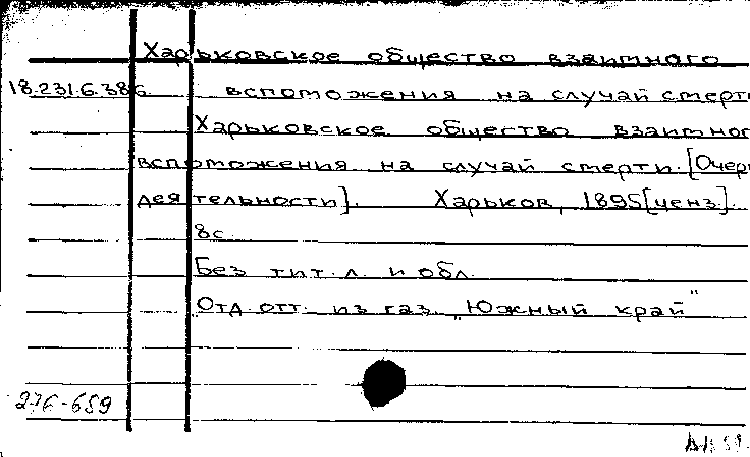 Харьковское общество взаимного
18.231.6.386 вспоможения на случай смерти
Харьковское общество взаимног
вспоможения на случай смерти. [Очерк
деятельности]. Харьков, 1895[ценз].
8с.
Без тит. л. и обл.
Отд. отт. из газ. „Южный край"
276-659